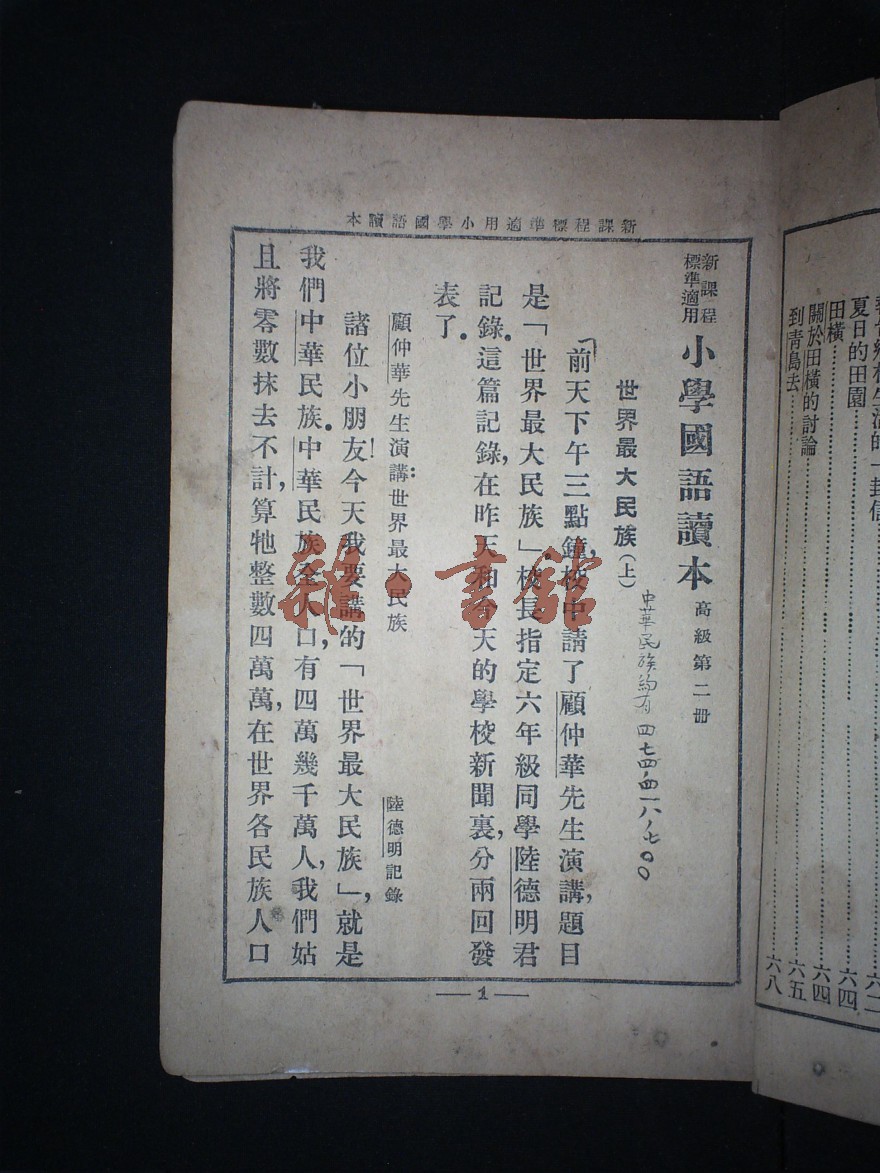 新課程標準適用小學國語讀本
新課程
標準適用
小學國語讀本 高級第二冊
世界最大民族(上)
中華民族約有四七四、四一八、七〇〇
「前天下午三點鐘,校中請了顧仲華先生演講,題目
是「世界最大民族」,校長指定六年級同學陸德明君
記錄。這篇記錄,在昨天和今天的學校新聞裏,分兩回發
表了。
顧仲華先生演講:世界最大民族
陸德明記錄
諸位小朋友!今天我要講的「世界最大民族」,就是
我們中華民族。中華民族全人口,有四萬幾千萬人,我們姑
且將零數抹去不計,算牠整數四萬萬,在世界各民族人口
1
夏日的田園
六四
田橫
六四
關於田橫的討論
六五
到青島去
六八
雜·書館